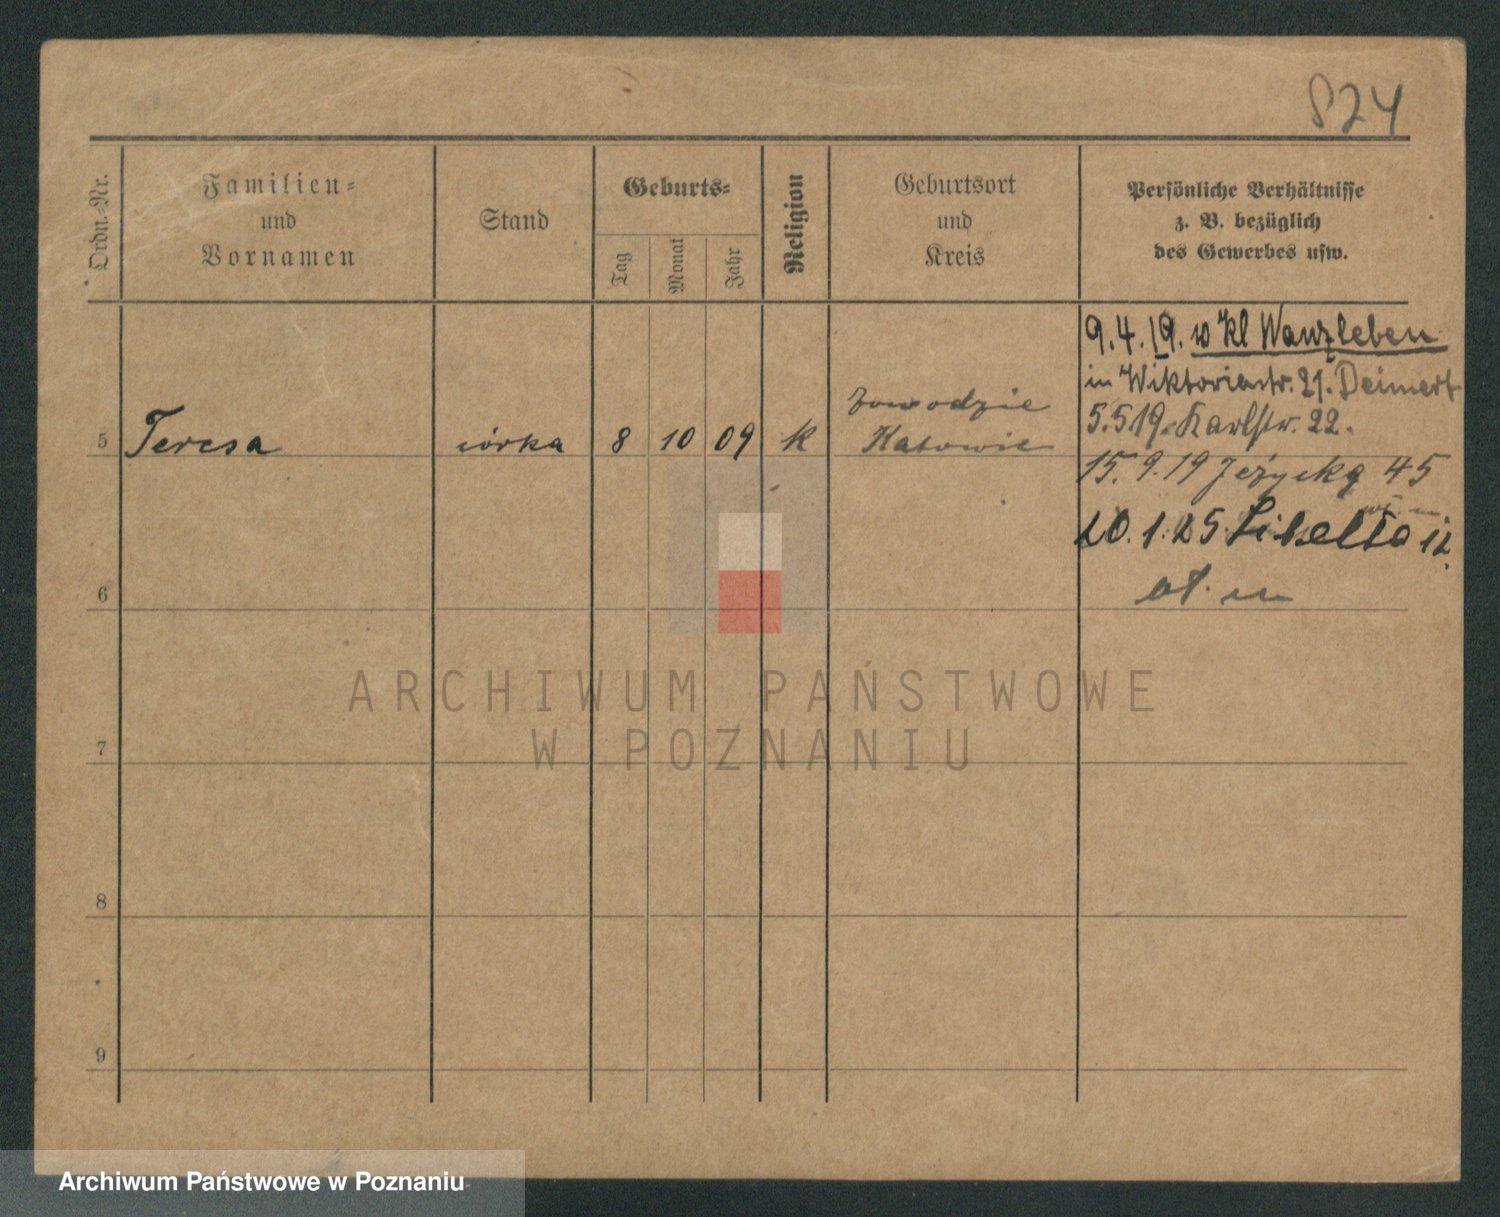 824
Ordn.-Nr.
Familien-
und
Vornamen
Stand
Geburts-
Tag
Monat
Jahr
Religion
Geburtsort
und
Kreis
Persönliche Verhältnisse
z. B. bezüglich
des Gewerbes usw.
9.4.19. w Kl Wanzleben
in Wiktoriastr. 21. Deimert
5.5 19. Karlstr. 22.
5 Teresa córka 8 10 09 k Zawodzie
Katowic
15. 9. 19 Jeżycka 45
20. 1. 25 Libelta 12.
6
7
8
9
ARCHIWUM PAŃSTWOWE
W POZNANIU
Archiwum Państwowe w Poznaniu